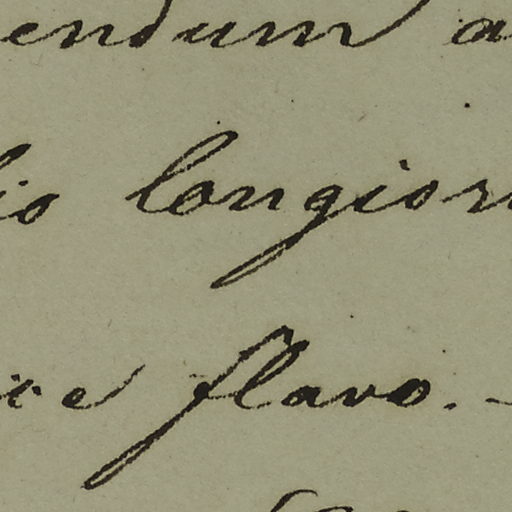 endum a
io longior
ice flavo. -